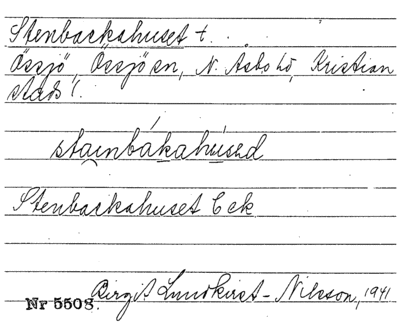 Stenbackahuset t.
Össjö, Össjö sn, N. Åsbo hd, Kristian
stads l.
stainbákahúsəd
Stenbackahuset Eek
Birgit Lundkvist-Nilsson, 1941
Nr 5508.